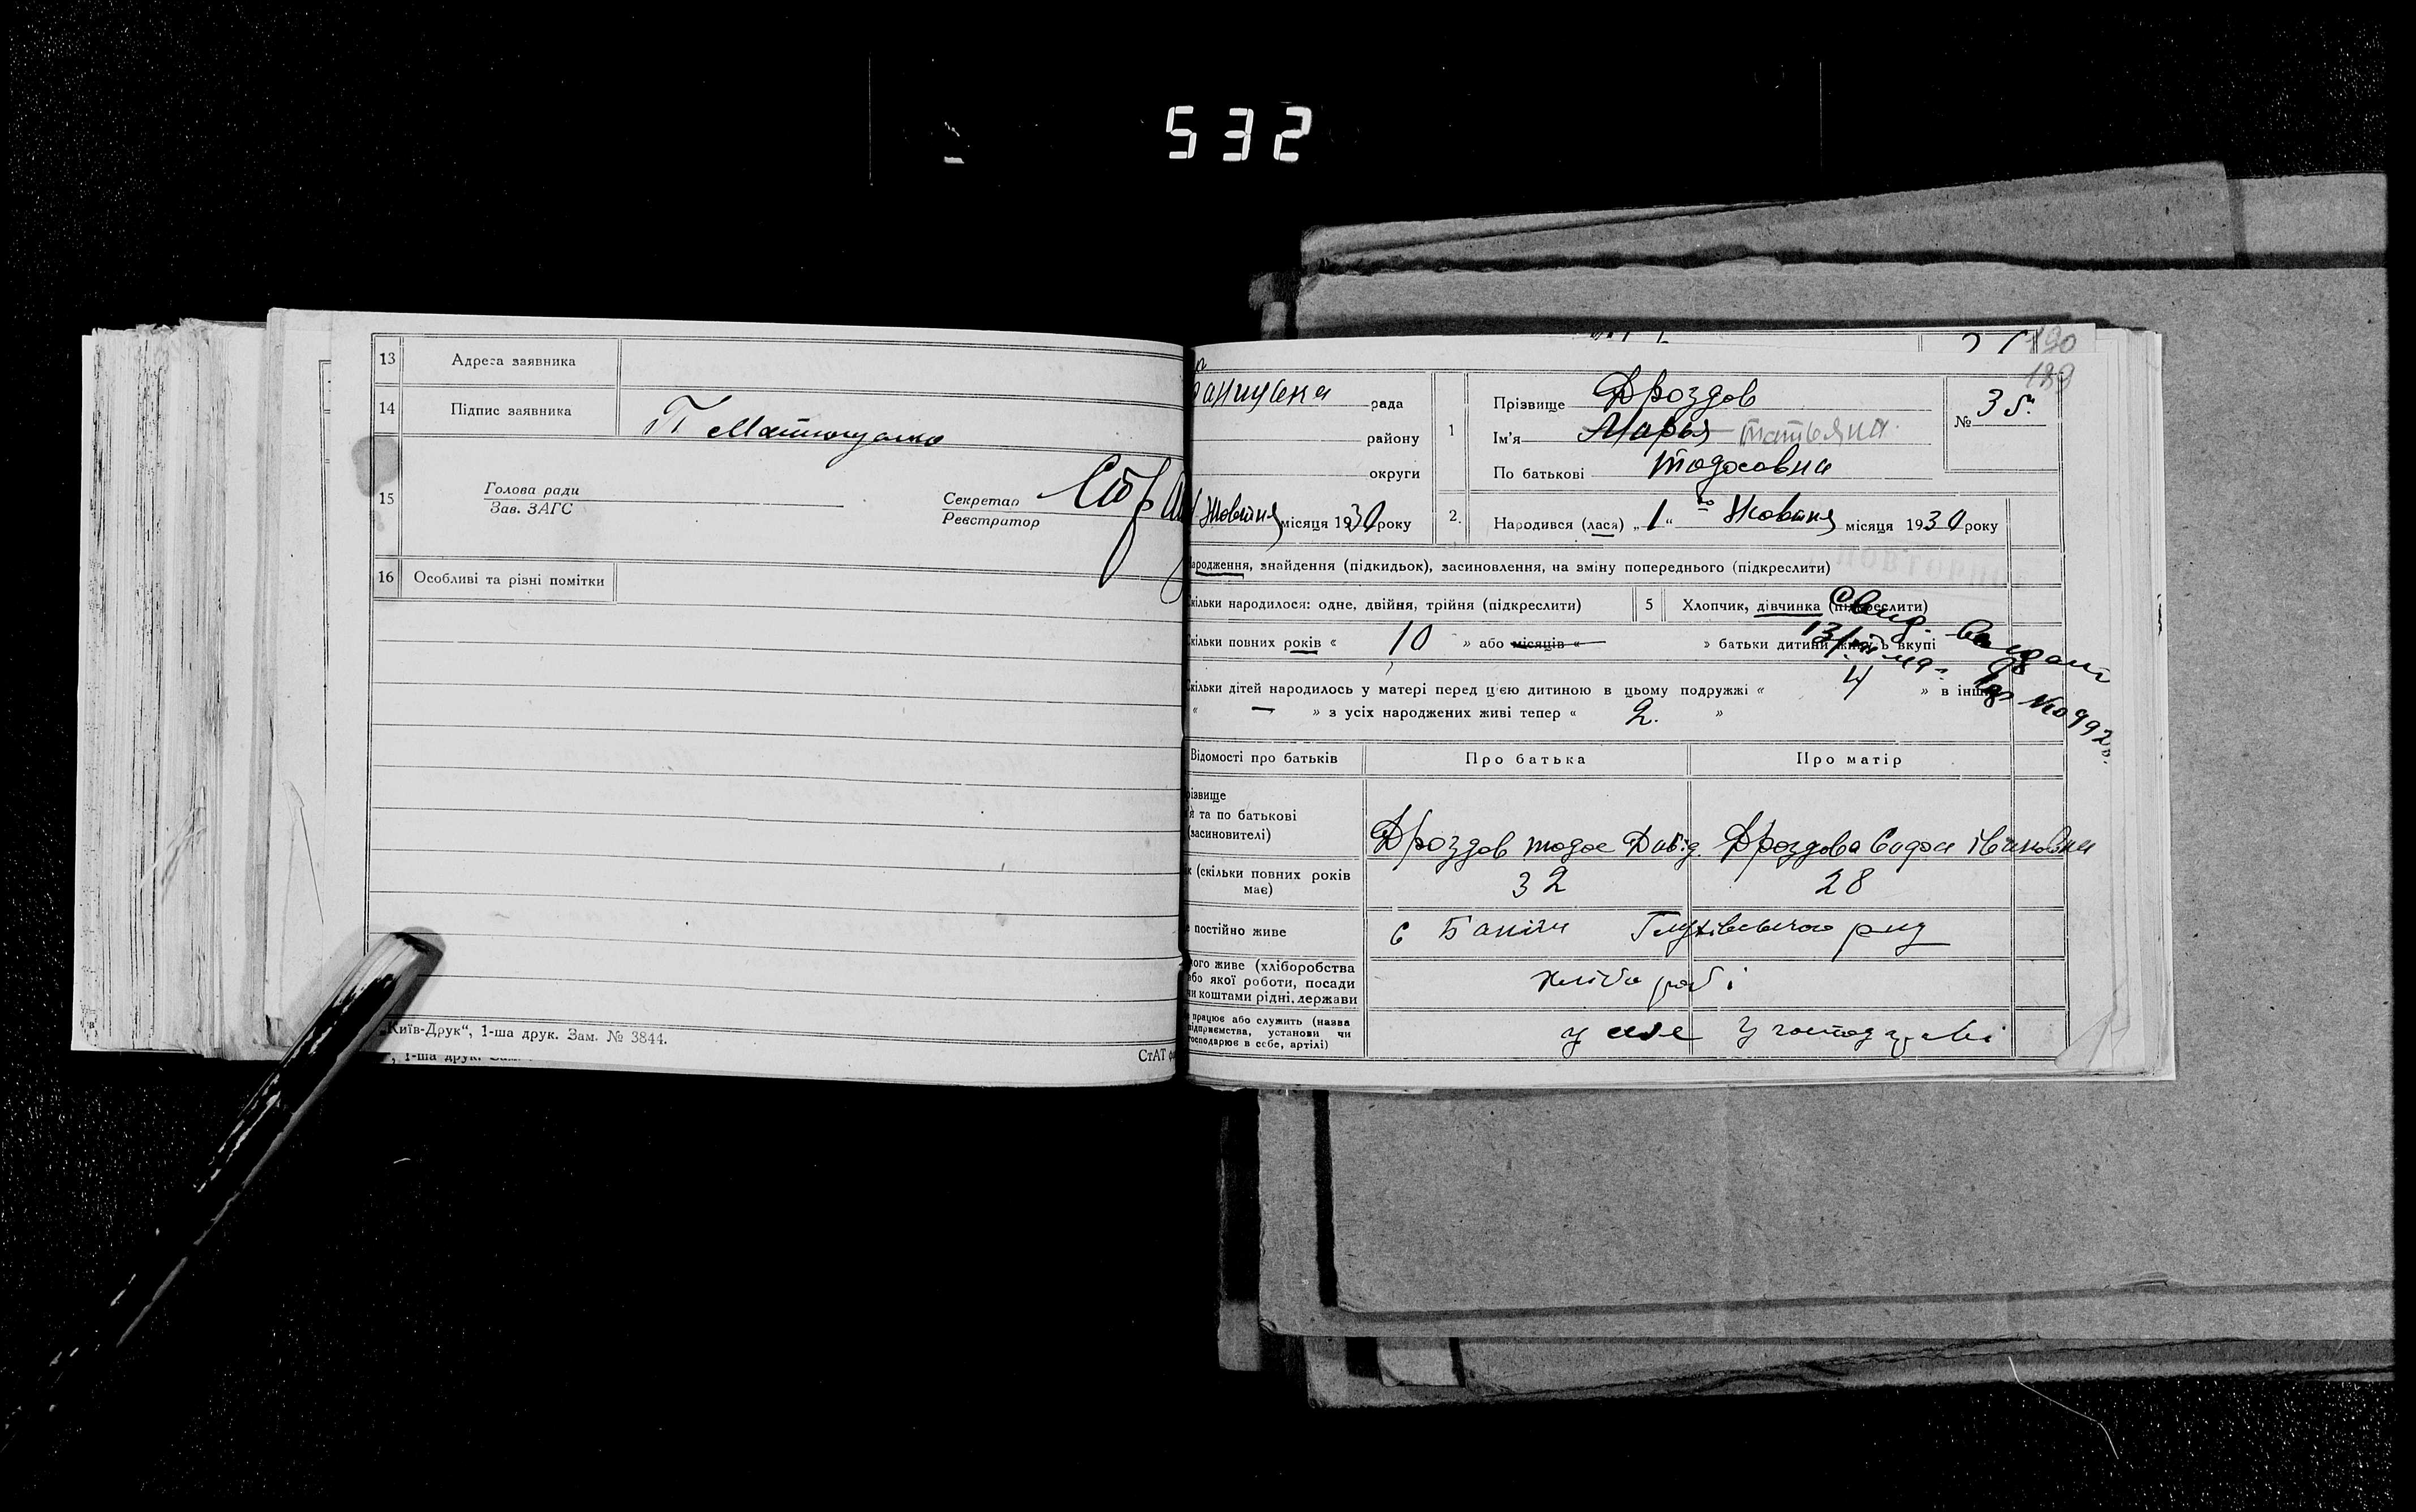 532
13 Адреса заявника
14 Підпис заявника
15 Голова ради
Зав. ЗАГС
Секретар
Реєстратор
16 Особливі та різні помітки
„Київ-Друк“, 1-ша друк. Зам. № 3844.
, 1-ша друк. Зам.
СтАТ
190
189
рада
району
округи
Жовтня місяця 1930 року
1 Прізвище Дроздов
Ім'я Марья Татьяна
По батькові Тодосовна
№ 35
2. Народився (лася) „1“ го Жовтня місяця 1930 року
ародження, знайдення (підкидьок), засиновлення, на зміну попереднього (підкреслити)
кільки народилося: одне, двійня, трійня (підкреслити)
5 Хлопчик, дівчинка (підкреслити)
кільки повних років « 10 » або місяців « » батьки дитини живуть вкупі
кільки дітей народилось у матері перед цією дитиною в цьому подружжі « 4 » в інш
« — » з усіх народжених живі тепер « 2. »
Відомості про батьків
Про батька
Про матір
різвище
я та по батькові
(засновителі)
Дроздов Тодос Давід.
Дроздова Івановна
к (скільки повних років має)
32
28
е постійно живе
с Банічи Глухівського
ого живе (хліборобства
або якої роботи, посади
чи коштами рідні, держави
хлібороб і
працює або служить (назва
підприємства, установи чи
господарює в себе, артілі)
у селе